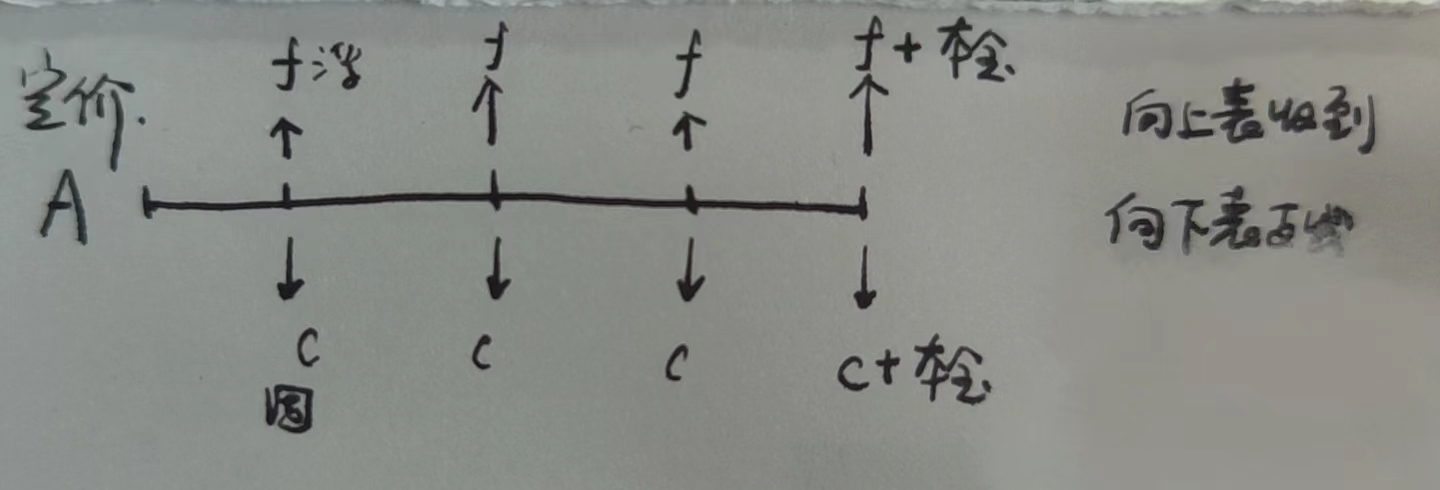 定价.
f浮 f f f+本金
向上表收到
A
向下表
c c c c+本金
固